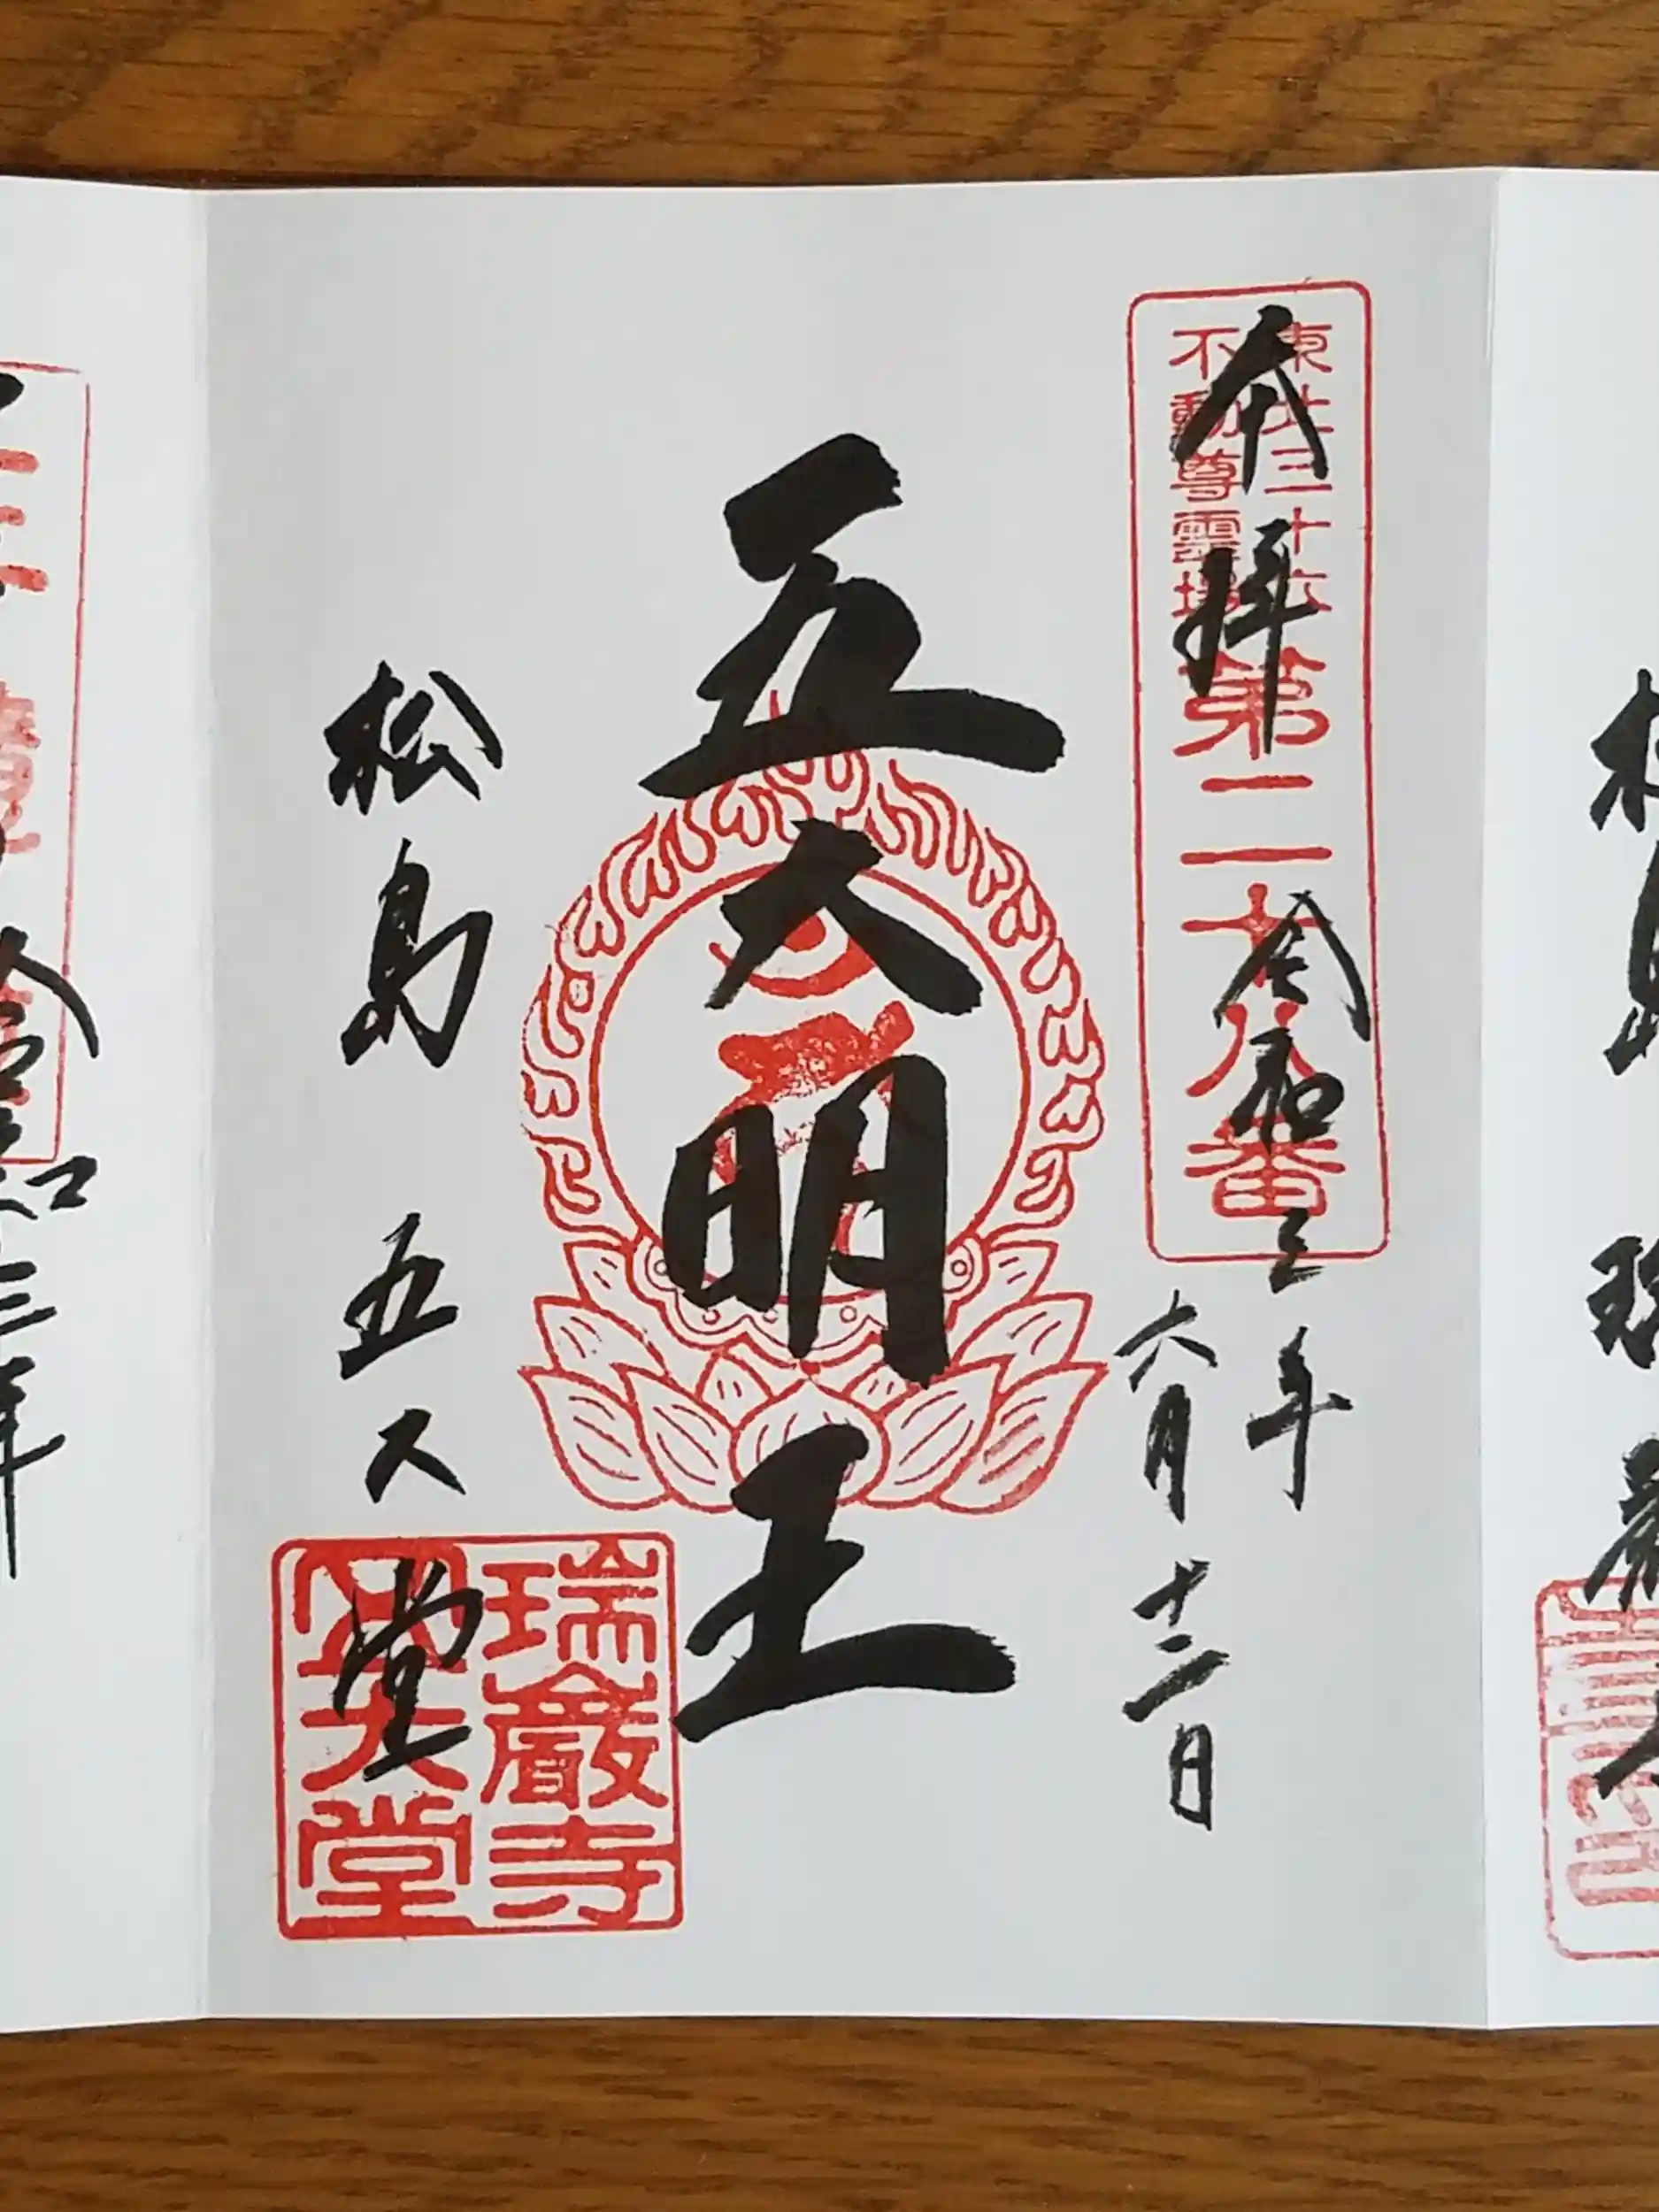 奉拝
東北三十六
不動尊霊場
第二十八番
令和三年
六月十二日
五大明王
松島 五大堂
瑞巖寺
五大堂